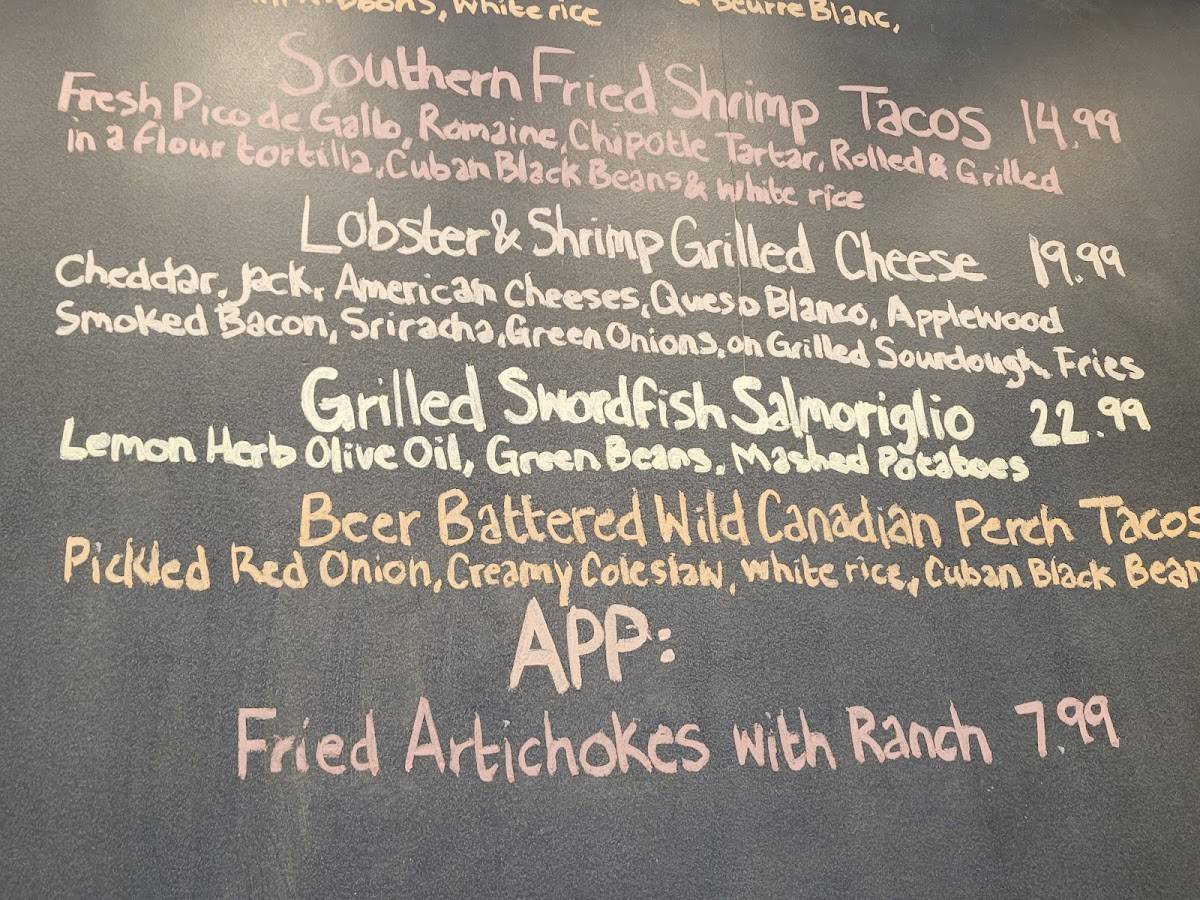 White rice
Beurre Blanc,
Southern Fried Shrimp Tacos 14.99
Fresh Pico de Gallo, Romaine, Chipotle Tartar, Rolled & Grilled
in a flour tortilla, Cuban Black Beans & white rice
Lobster & Shrimp Grilled Cheese 19.99
Cheddar, Jack, American cheeses, Queso Blanco, Applewood
Smoked Bacon, Sriracha, Green Onions, on Grilled Sourdough, Fries
Grilled Swordfish Salmoriglio 22.99
Lemon Herb Olive Oil, Green Beans, Mashed Potatoes
Beer Battered Wild Canadian Perch Tacos
Pickled Red Onion, Creamy Coleslaw, white rice, Cuban Black Bean
APP:
Fried Artichokes with Ranch 7.99